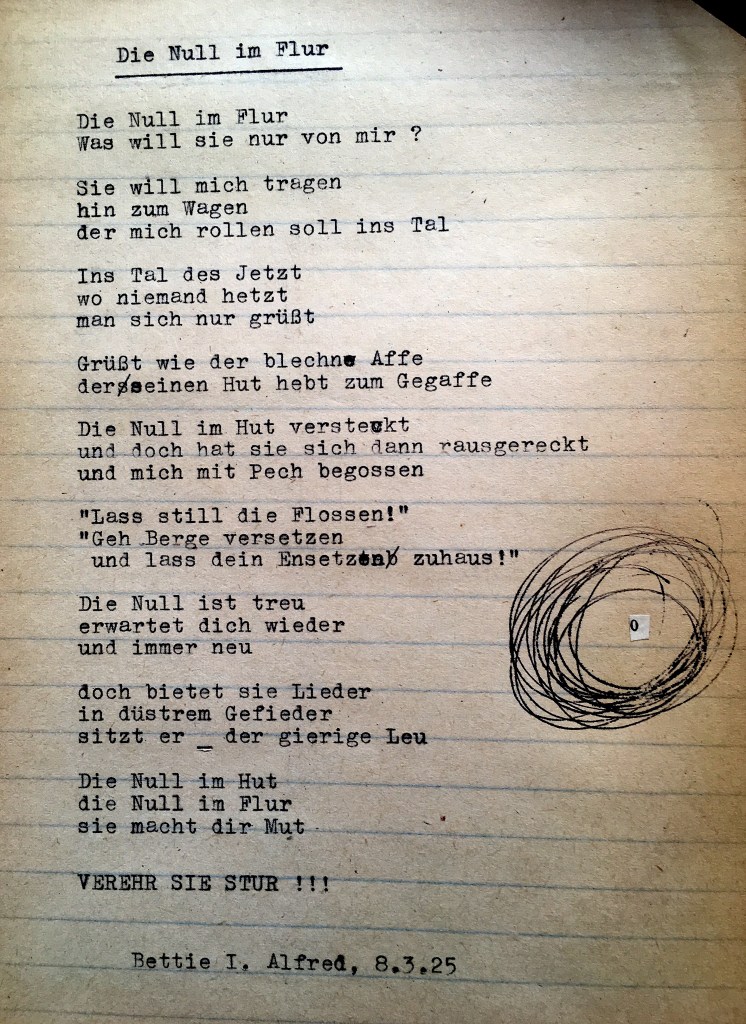 Die Null im Flur
Die Null im Flur
Was will sie nur von mir ?
Sie will mich tragen
hin zum Wagen
der mich rollen soll ins Tal
Ins Tal des Jetzt
wo niemand hetzt
man sich nur grüßt
Grüßt wie der blechne Affe
der seinen Hut hebt zum Gegaffe
Die Null im Hut versteckt
und doch hat sie sich dann rausgereckt
und mich mit Pech begossen
"Lass still die Flossen!"
"Geh Berge versetzen
und lass dein Ensetzen zuhaus!"
0
Die Null ist treu
erwartet dich wieder
und immer neu
doch bietet sie Lieder
in düstrem Gefieder
sitzt er _ der gierige Leu
Die Null im Hut
die Null im Flur
sie macht dir Mut
VEREHR SIE STUR !!!
Bettie I. Alfred, 8.3.25